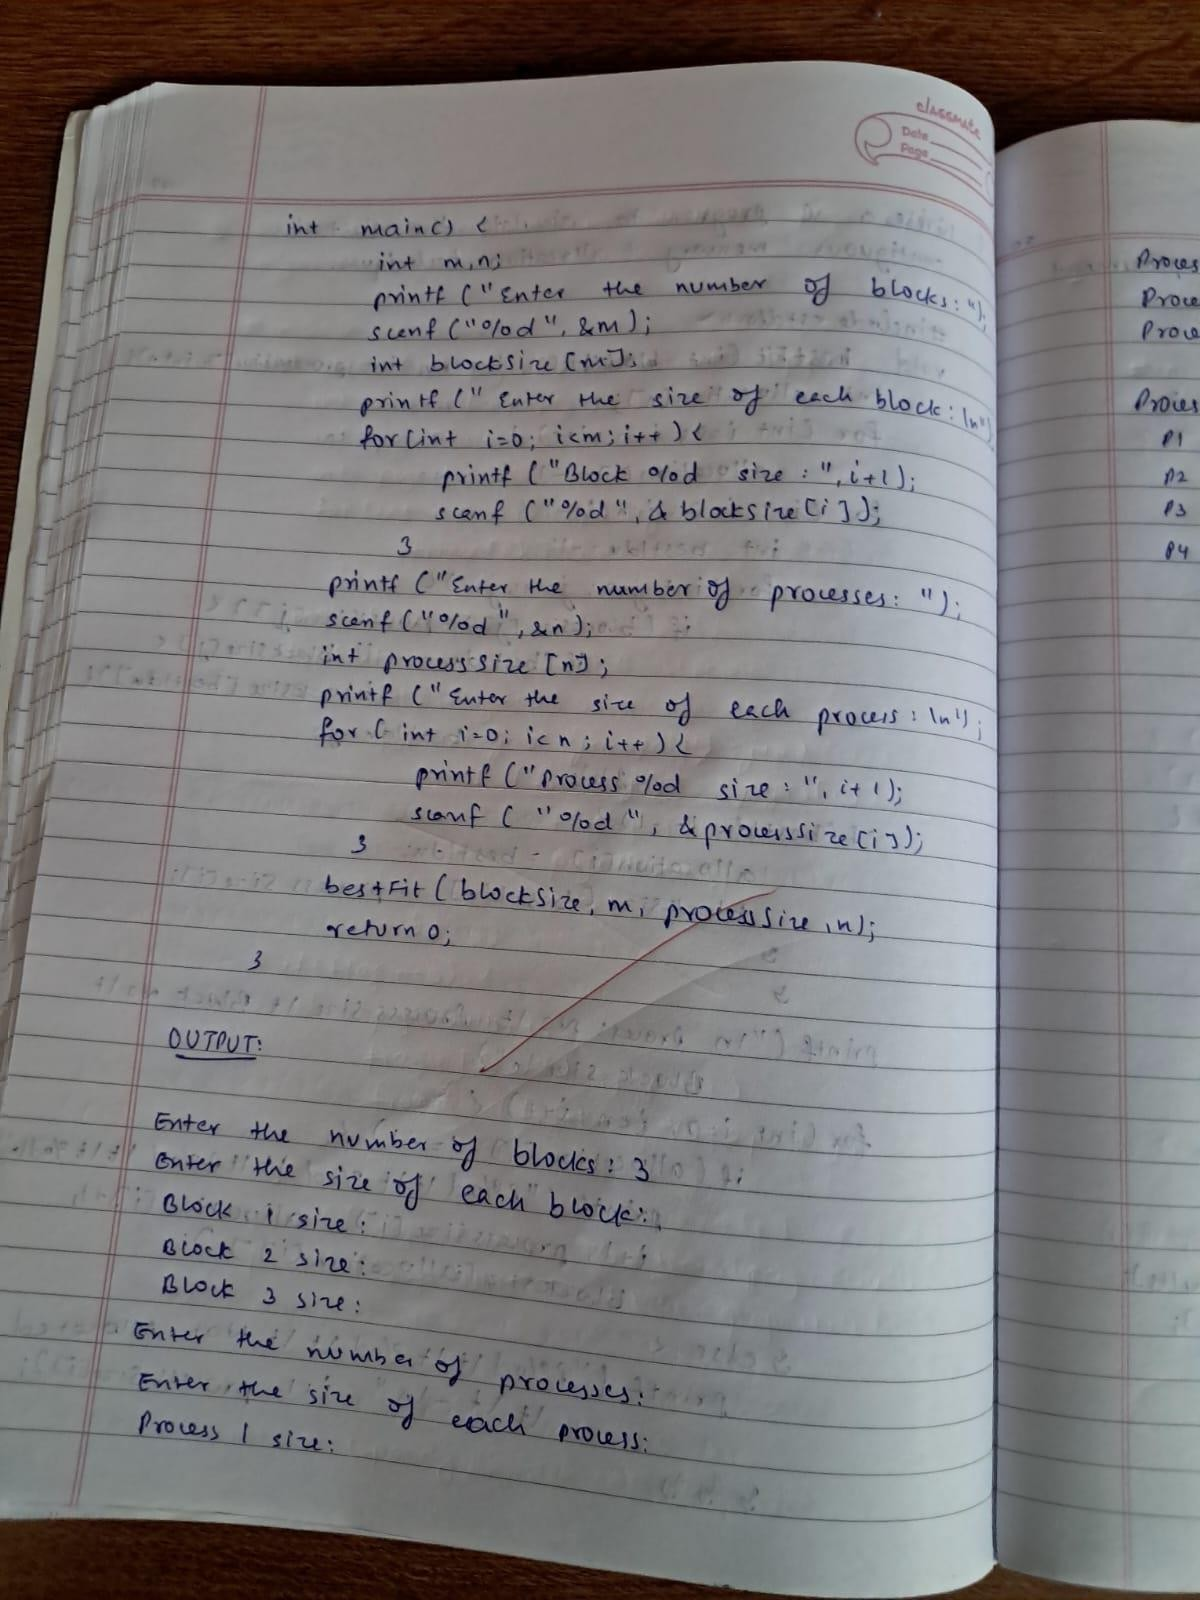 classmate
Date
Page
int main() {
int m,n;
printf ("Enter the number of blocks: ");
scanf ("%d", &m);
int blocksize [m];
printf (" Enter the size of each block: \n")
for(int i=0; i<m; i++) {
printf ("Block %d size : ", i+1);
scanf ("%d", & blocksize [i]);
}
printf ("Enter the number of processes: ");
scanf ("%d", &n);
int processsize [n];
printf (" Enter the size of each process: \n");
for ( int i=0; i<n; i++) {
printf ("Process %d size : ", i+1);
scanf ( "%d", &processsize [i]);
}
bestFit ( blockSize, m, processSize, n);
return 0;
}
OUTPUT:
Enter the number of blocks: 3
Enter the size of each block:
Block 1 size:
Block 2 size:
Block 3 size:
Enter the number of processes:
Enter the size of each process:
Process 1 size:
P1
P2
P3
P4